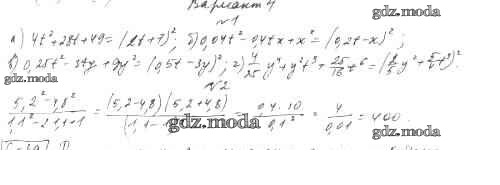 Вариант 4
gdz.moda
№1
а) 4t²+28t+49=(2t+7)²; б) 0,04t²-0,4tx+x²=(0,2t-x)²;
в) 0,25t²-3ty+9y²=(0,5t-3y)²; г) 4/25 y⁴+y²t³+25/16 t⁶=(2/5 y²+5/4 t³)²
gdz.moda
№2
(5,2²-4,8²)/(1,1²-2·1,1+1) = (5,2-4,8)(5,2+4,8)/(1,1-1)² = 0,4·10/0,1² = 4/0,01 = 400.
gdz.moda
gdz.moda